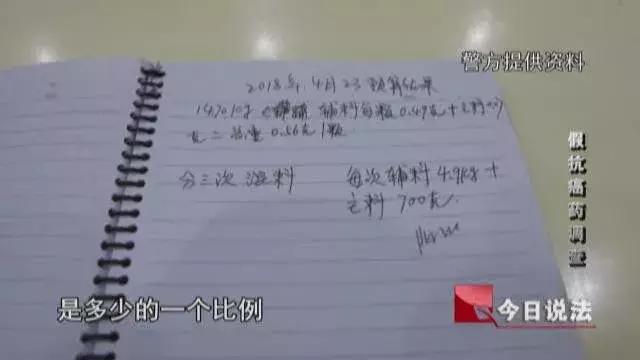 警方提供资料
2018年4月23 预算结果
14.70kg 辅料每颗0.49克+主料
克=总重0.56克/颗
分三次混料 每次辅料4.9kg+
主料700克.
假抗癌药调查
是多少的一个比例
今日说法